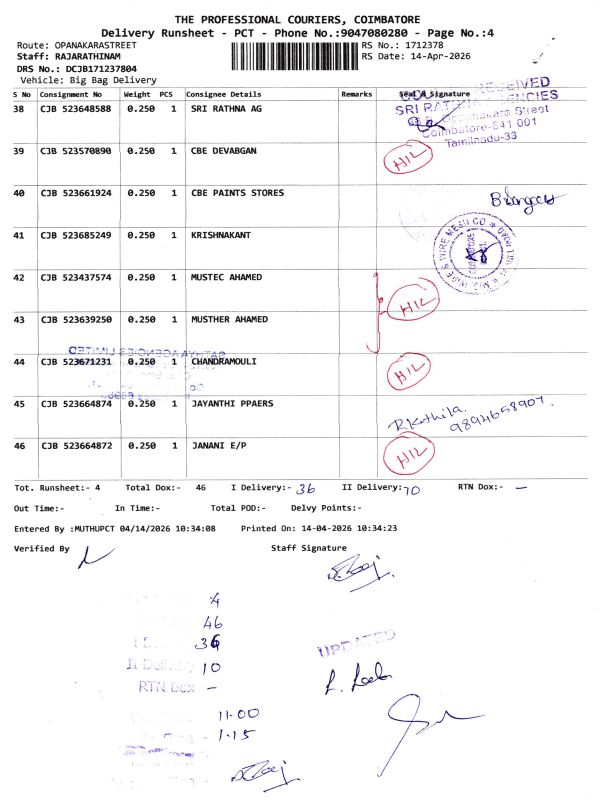 THE PROFESSIONAL COURIERS, COIMBATORE
Delivery Runsheet - PCT - Phone No.:9047080280 - Page No.:4
Route: OPANAKARASTREET
RS No.: 1712378
Staff: RAJARATHINAM
RS Date: 14-Apr-2026
DRS No.: DCJB171237804
Vehicle: Big Bag Delivery
S No Consignment No Weight PCS Consignee Details Remarks Seal & Signature
38 CJB 523648588 0.250 1 SRI RATHNA AG
RECEIVED
Coimbatore-641 001
Tamilnadu-33
39 CJB 523570890 0.250 1 CBE DEVABGAN HIL
40 CJB 523661924 0.250 1 CBE PAINTS STORES
41 CJB 523685249 0.250 1 KRISHNAKANT
42 CJB 523437574 1 0.250 MUSTEC AHAMED
HIL
43 CJB 523639250 0.250 1 MUSTHER AHAMED
44 CJB 523671231 0.250 1 CHANDRAMOULI HIL
45 CJB 523664874 0.250 1 JAYANTHI PPAERS
R. Kothila.
9894658907.
46 CJB 523664872 0.250 1 JANANI E/P HIL
Tot. Runsheet:- 4 Total Dox:- 46 I Delivery:- 36 II Delivery:- 10 RTN Dox:- -
Out Time:- In Time:- Total POD:- Delvy Points:-
Entered By :MUTHUPCT 04/14/2026 10:34:08 Printed On: 14-04-2026 10:34:23
Verified By Staff Signature
4
46
36
UPDATED
II Delivery 10
RTN Dox -
11-00
1-15